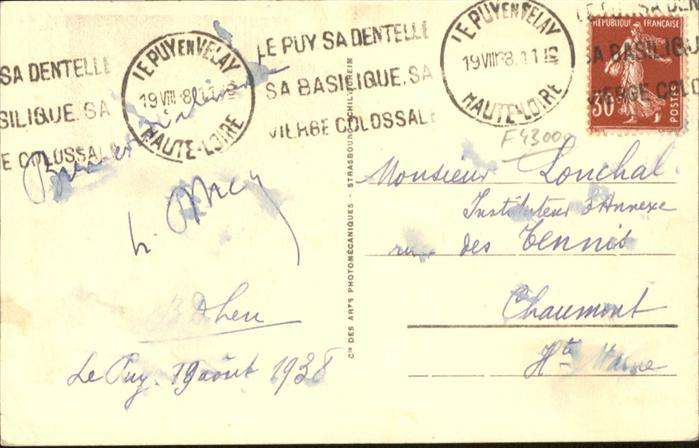 LE PUY SA DENTELLE
SA BASILIQUE. SA
VIERGE COLOSSALE
LE PUY EN VELAY
19 VIII 38
HAUTE-LOIRE
LE PUY SA DENTELLE
SA BASILIQUE. SA
VIERGE COLOSSALE
LE PUY EN VELAY
19 VIII 38
HAUTE-LOIRE
SA DENTEL
SA BASILIQ
VIERGE COLO
RÉPUBLIQUE FRANÇAISE
30
POSTES
F43000
Le Puy. 19 août 1938
Cie DES ARTS PHOTOMÉCANIQUES - STRASBOURG-SCHILTIGHEIM
Monsieur Lonchal
Instituteur d'Annexe
rue des Tennis
Chaumont
Hte Marne